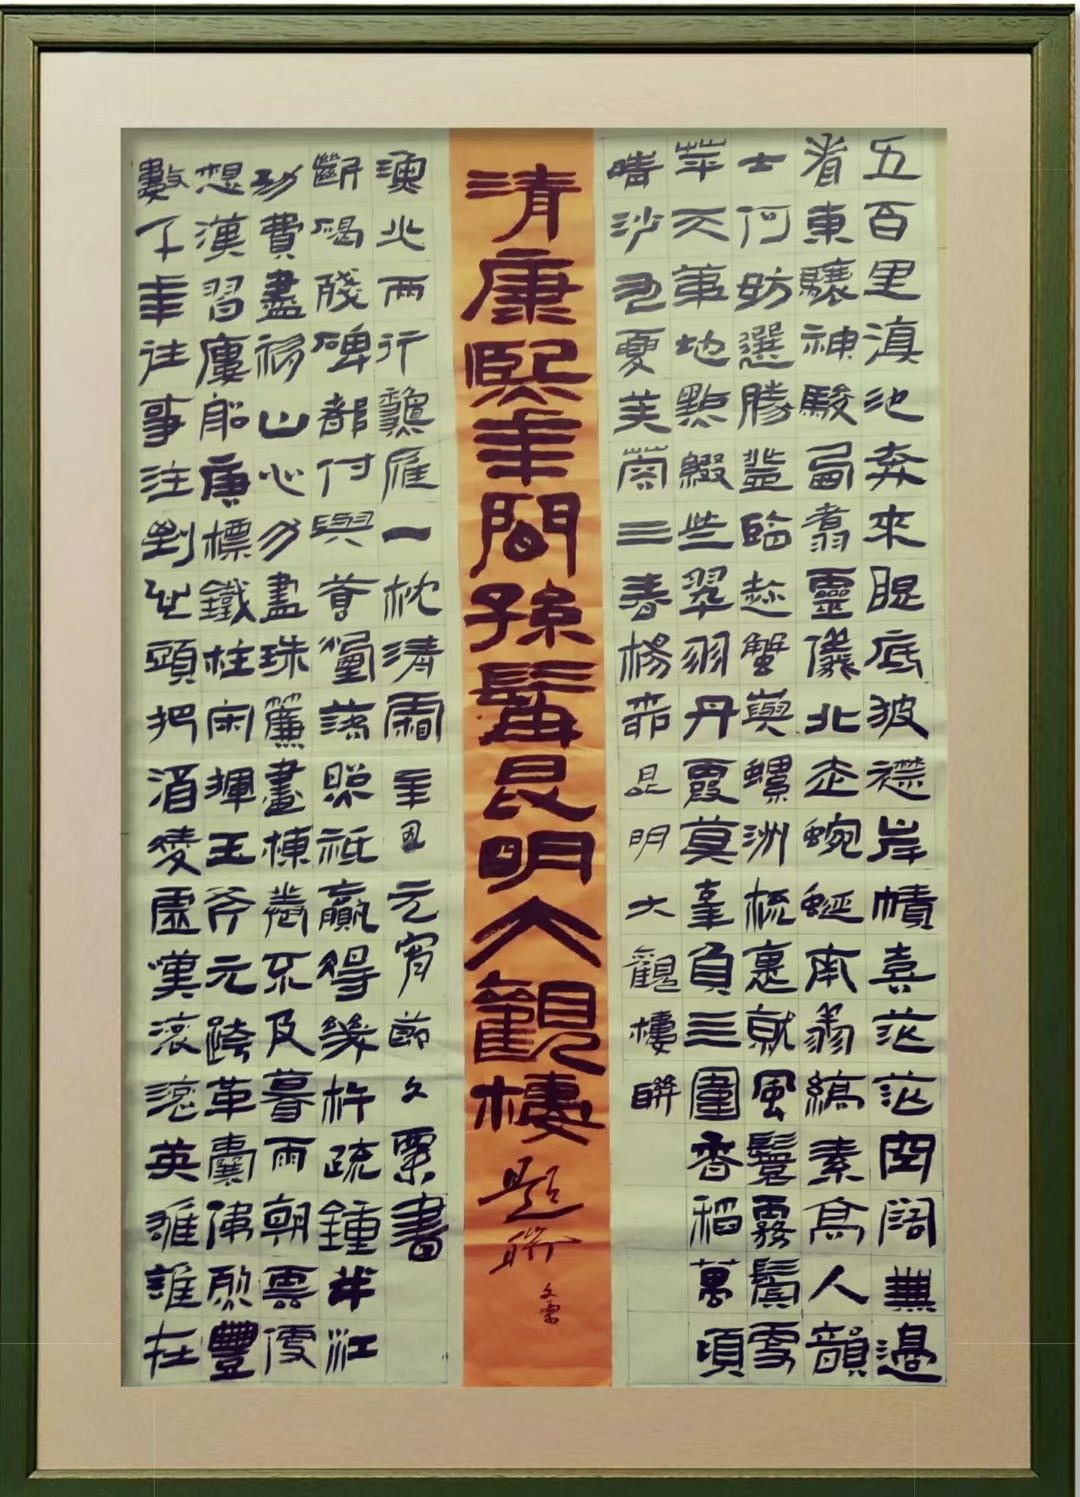 五百里滇池奔來眼底披襟岸幘喜茫茫空闊無邊
看東驤神駿西翥靈儀北走蜿蜒南翔縞素高人韻
士何妨選勝登臨趁蟹嶼螺洲梳裹就風鬟霧鬢更
苹天葦地點綴些翠羽丹霞莫辜負四圍香稻萬頃
晴沙九夏芙蓉三春楊柳昆明大觀樓聯
清康熙年間孫髯昆明大觀樓題聯
數千年往事注到心頭把酒凌虛嘆滾滾英雄誰在
想漢習樓船唐標鐵柱宋揮玉斧元跨革囊偉烈豐
功費盡移山心力盡珠簾畫棟卷不及暮雨朝雲便
斷碣殘碑都付與蒼煙落照祗贏得幾杵疏鐘半江
漁火兩行秋雁一枕清霜辛丑元宵節書